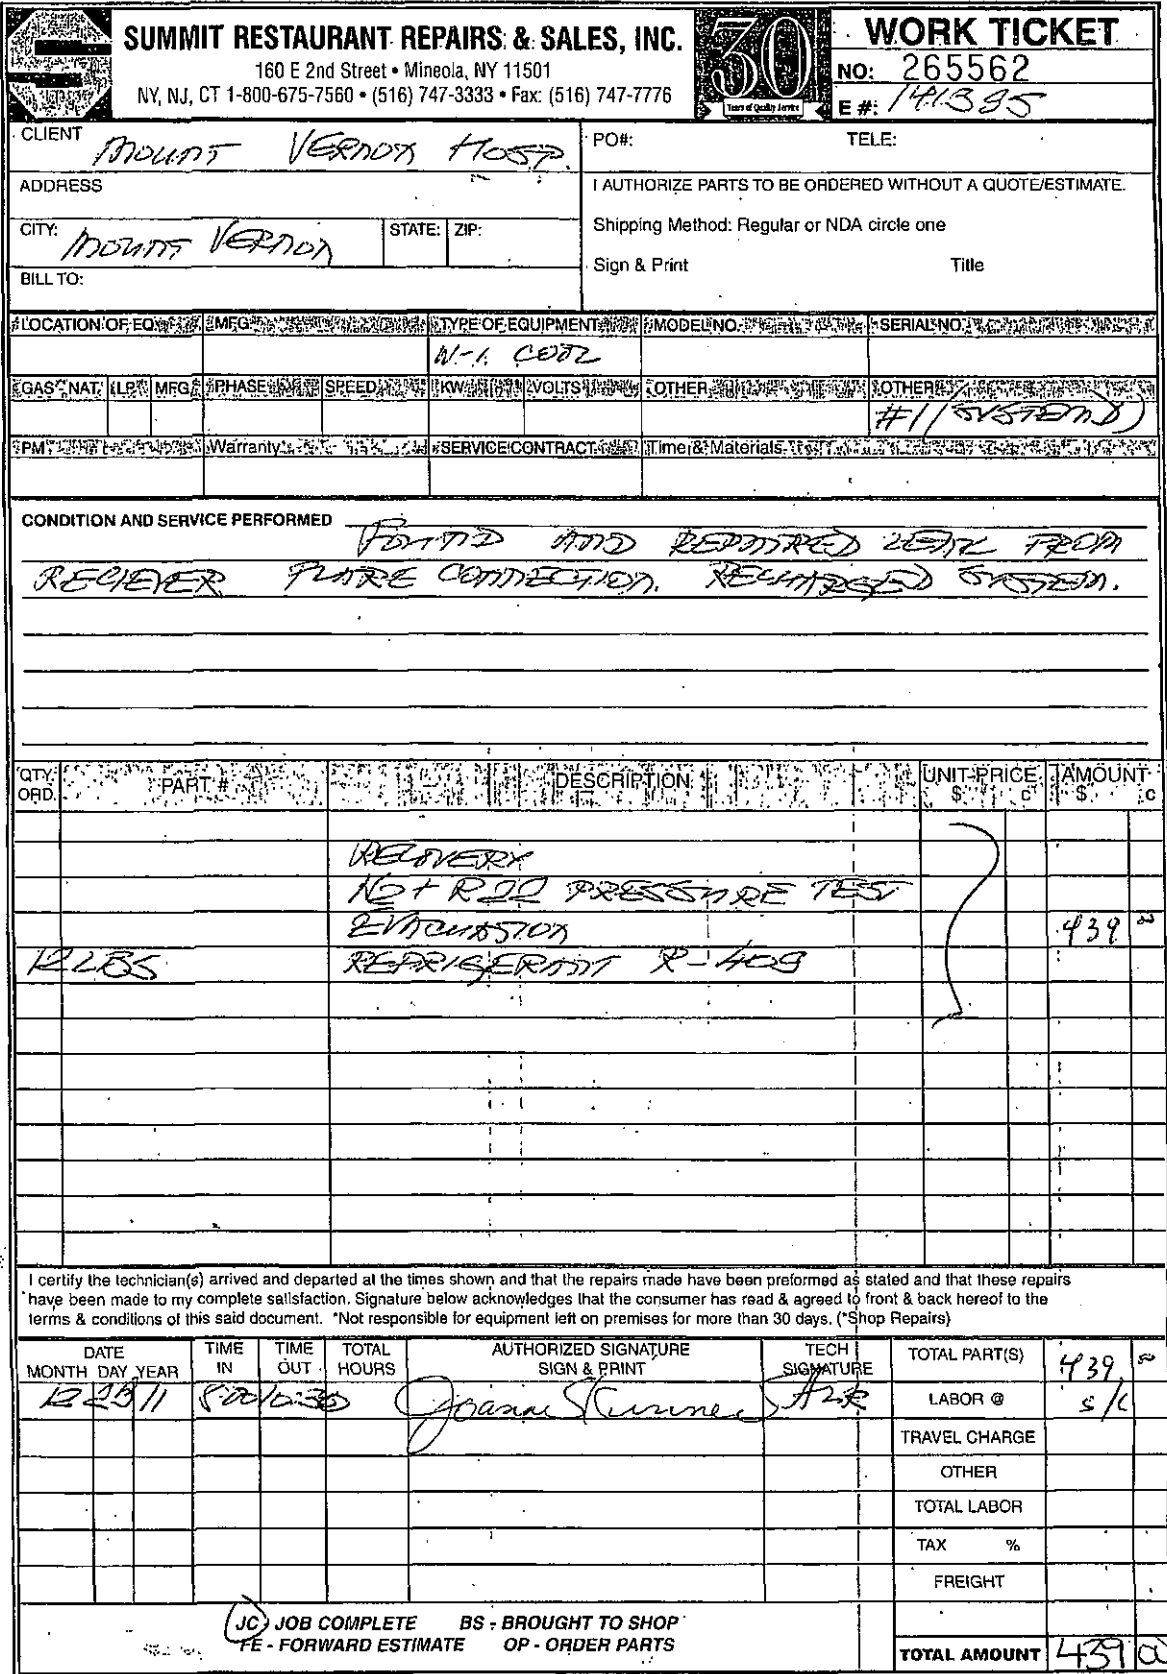 SUMMIT RESTAURANT REPAIRS & SALES, INC.
160 E 2nd Street • Mineola, NY 11501
NY, NJ, CT 1-800-675-7560 • (516) 747-3333 • Fax: (516) 747-7776
30
Years of Quality Service
WORK TICKET
NO: 265562
E #: 141385
CLIENT MOUNT VERNON HOSP.
PO#: TELE:
ADDRESS
I AUTHORIZE PARTS TO BE ORDERED WITHOUT A QUOTE/ESTIMATE.
CITY: MOUNT VERNON STATE: ZIP:
Shipping Method: Regular or NDA circle one
Sign & Print Title
BILL TO:
LOCATION OF EQ MFG TYPE OF EQUIPMENT MODEL NO. SERIAL NO.
W-I. COOL
GAS NAT. LP MFG PHASE SPEED KW VOLTS OTHER OTHER
#1 (SYSTEM D)
PM Warranty SERVICE CONTRACT Time & Materials
CONDITION AND SERVICE PERFORMED
FOUND AND REPAIRED LEAK FROM
RECIEVER FLARE CONNECTION. RECHARGED SYSTEM.
QTY. ORD. PART # DESCRIPTION UNIT PRICE $ C AMOUNT $ C
RECOVERY
N2 + R22 PRESSURE TEST
EVACUASTION 439 00
12 LBS REFRIGERANT R-409
I certify the technician(s) arrived and departed at the times shown and that the repairs made have been preformed as stated and that these repairs
have been made to my complete satisfaction. Signature below acknowledges that the consumer has read & agreed to front & back hereof to the
terms & conditions of this said document. *Not responsible for equipment left on premises for more than 30 days. (*Shop Repairs)
DATE MONTH DAY YEAR TIME IN TIME OUT TOTAL HOURS AUTHORIZED SIGNATURE SIGN & PRINT TECH SIGNATURE
TOTAL PART(S) 439 00
12 23 11 8:00 10:30 Joanne
LABOR @ s/c
TRAVEL CHARGE
OTHER
TOTAL LABOR
TAX %
FREIGHT
JC JOB COMPLETE BS - BROUGHT TO SHOP
FE - FORWARD ESTIMATE OP - ORDER PARTS
TOTAL AMOUNT 439 00